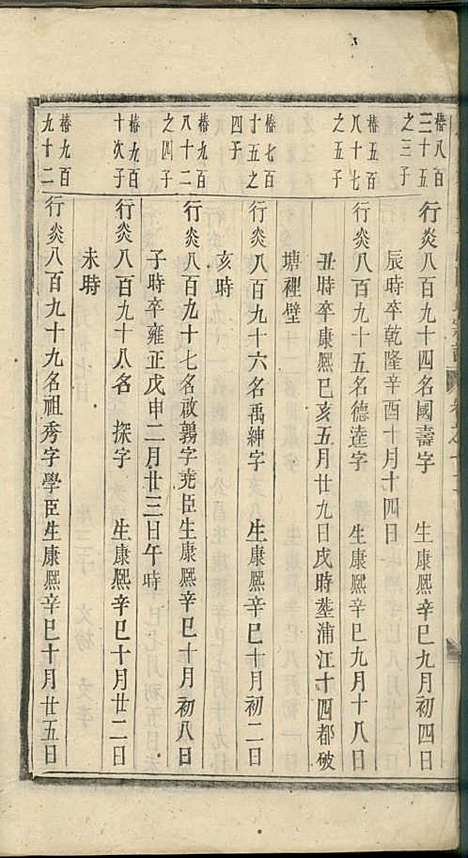 椿八百
二十五
之三子
行炎八百九十四名國壽字　生康熙辛巳九月初四日
辰時卒乾隆辛酉十月十四日
椿五百
八十七
之五子
行炎八百九十五名德逵字　生康熙辛巳九月十八日
丑時卒康熙己亥五月廿九日戌時塟蒲江十四都破
塘裡壁
椿七百
十五之
四子
行炎八百九十六名禹紳字　生康熙辛巳十月初二日
亥時
椿九百
八十二
之四子
行炎八百九十七名啟鶚字堯臣生康熙辛巳十月初八日
子時卒雍正戊申二月廿三日午時
椿九百
十次子
行炎八百九十八名　探字　生康熙辛巳十月廿二日
未時
椿九百
九十二
行炎八百九十九名祖秀字學臣生康熙辛巳十月廿五日